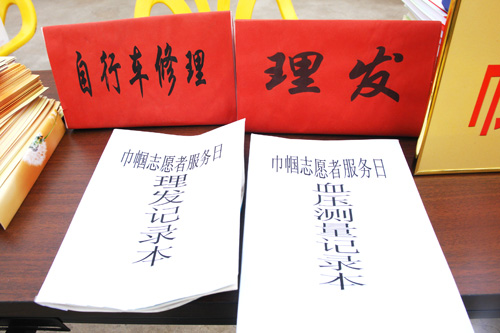 自行车修理
理发
巾帼志愿者服务日
理发记录本
巾帼志愿者服务日
血压测量记录本